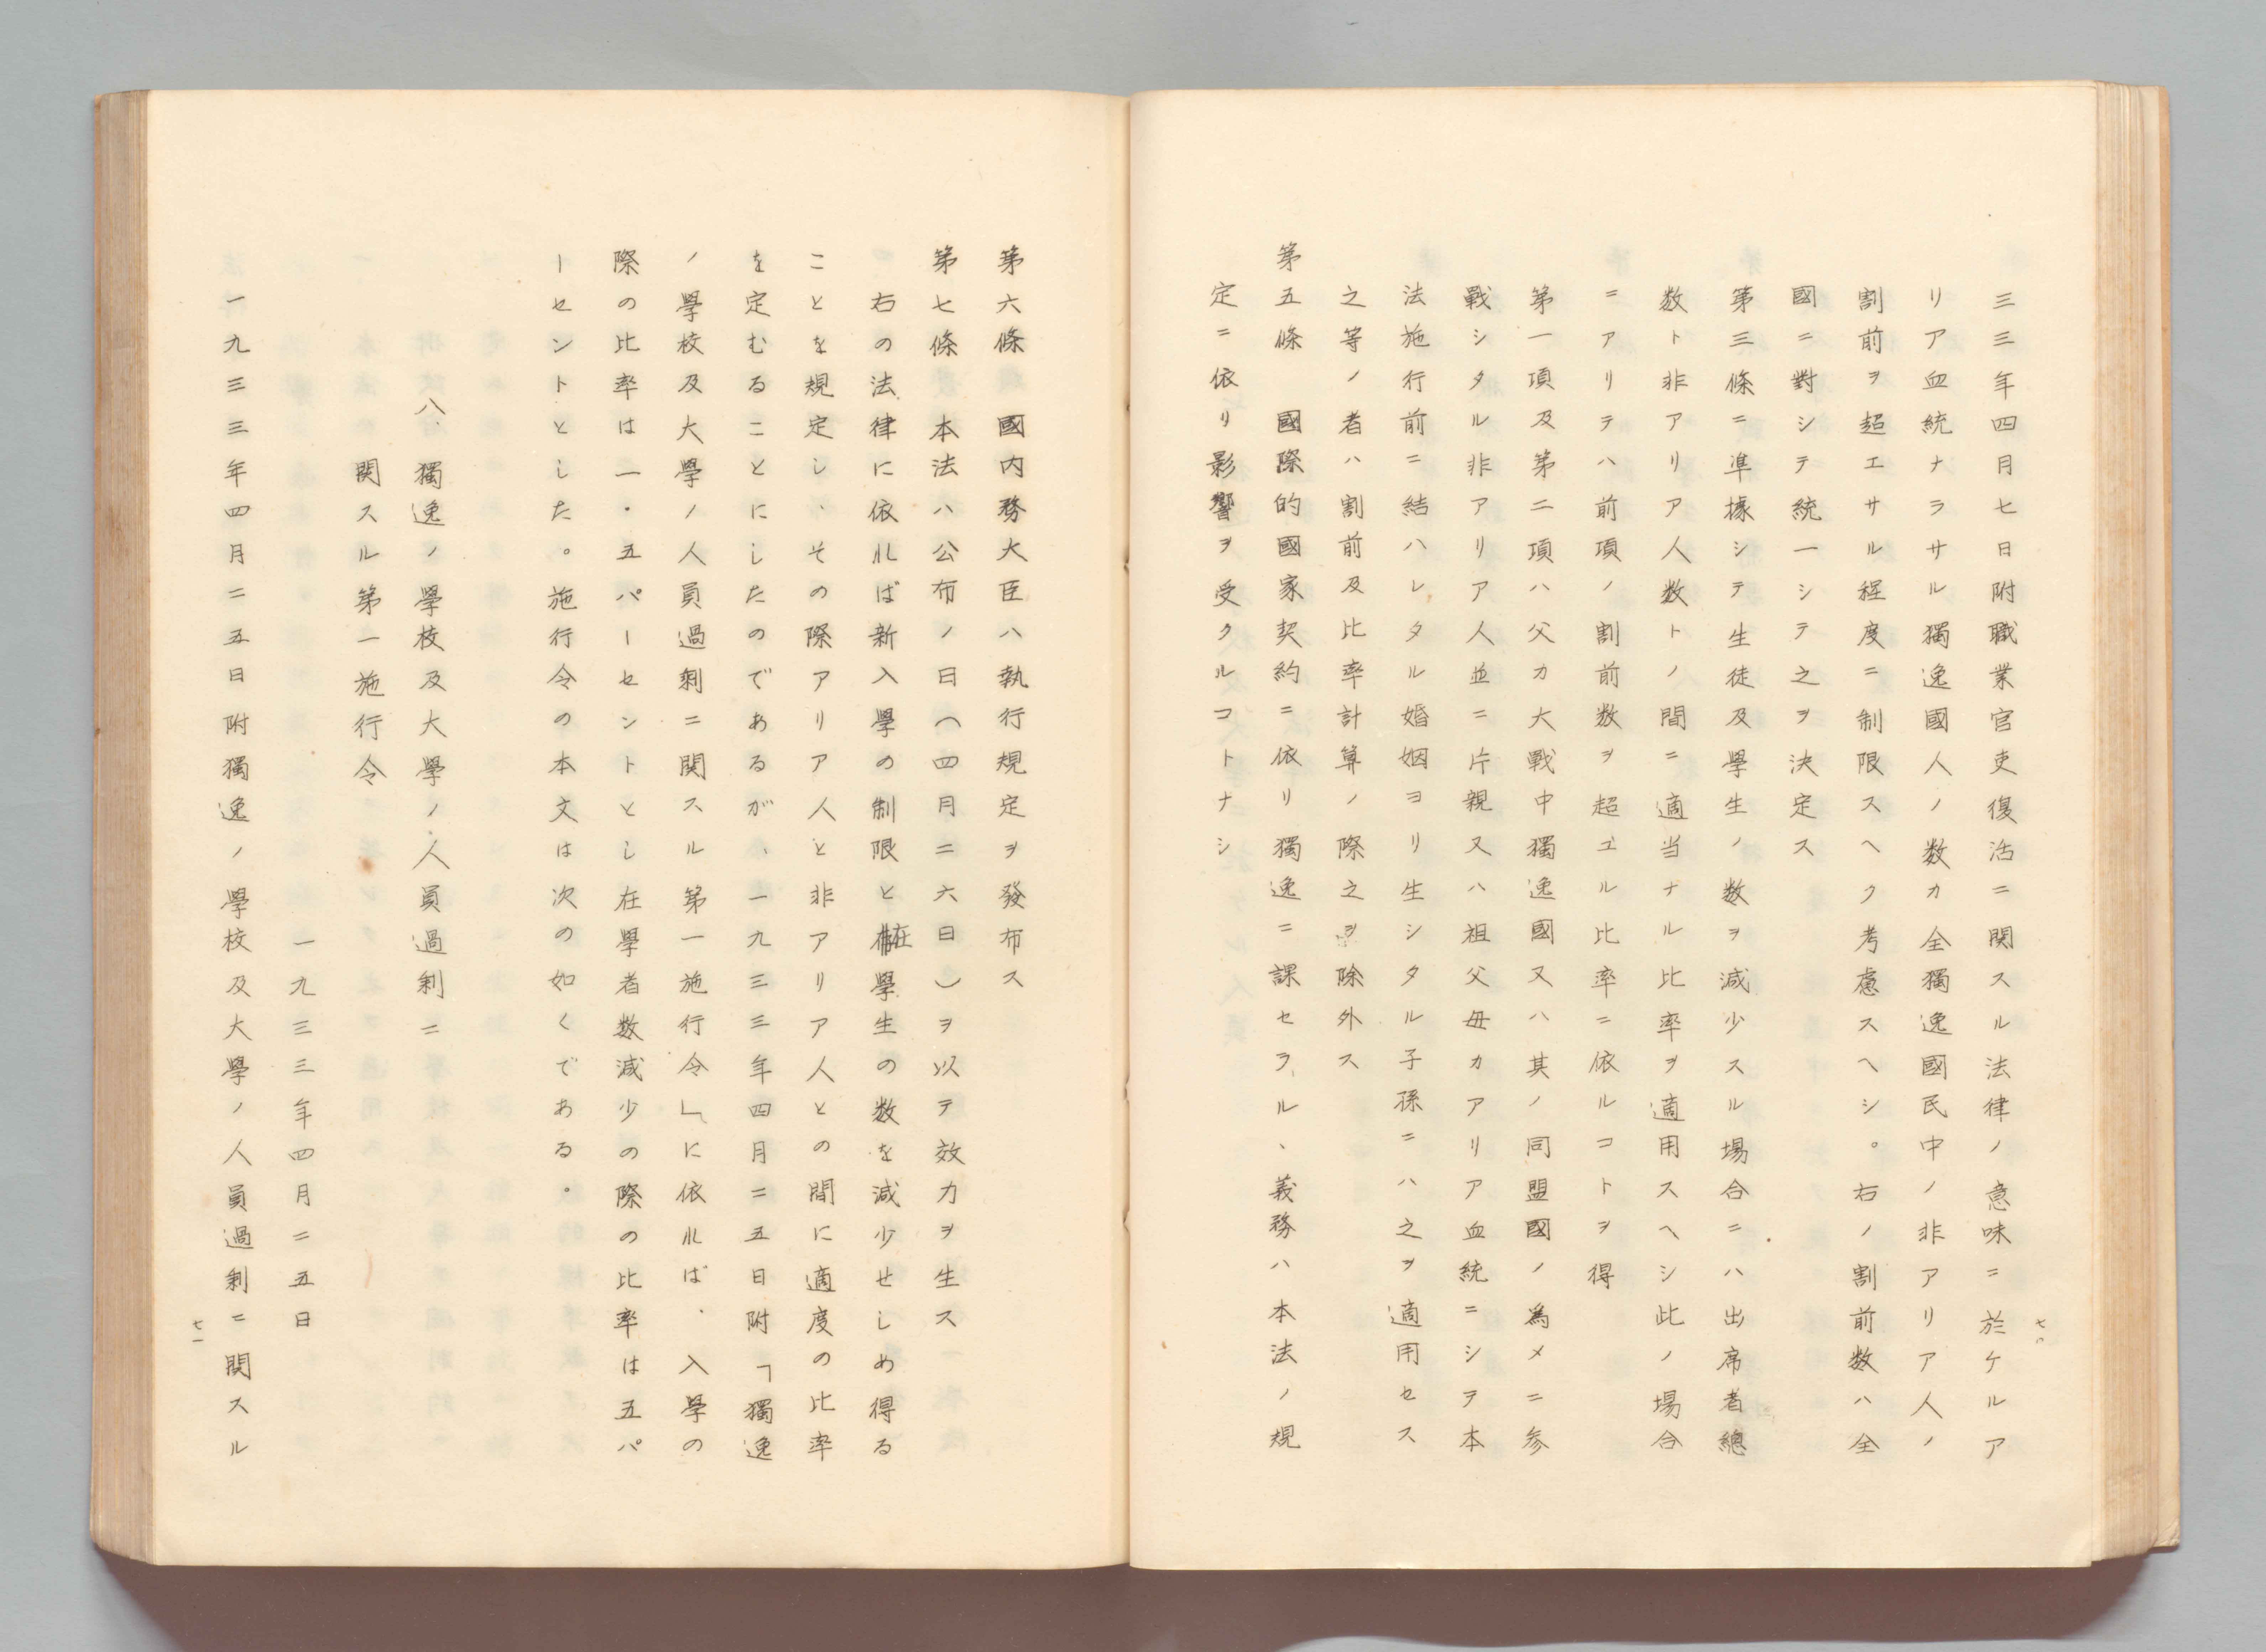 三三年四月七日附職業官吏復活ニ関スル法律ノ意味ニ於ケルア
リア血統ナラサル獨逸國人ノ数カ全獨逸國民中ノ非アリア人ノ
割前ヲ超エサル程度ニ制限スヘク考慮スヘシ。右ノ割前数ハ全
國ニ對シテ統一シテ之ヲ決定ス
第三條ニ準據シテ生徒及學生ノ数ヲ減少スル場合ニハ出席者總
数ト非アリア人数トノ間ニ適当ナル比率ヲ適用スヘシ此ノ場合
ニアリテハ前項ノ割前数ヲ超ユル比率ニ依ルコトヲ得
第一項及第二項ハ父カ大戰中獨逸國又ハ其ノ同盟國ノ為メニ参
戰シタル非アリア人並ニ片親又ハ祖父母カアリア血統ニシヲ本
法施行前ニ結ハレタル婚姻ヨリ生シタル子孫ニハ之ヲ適用セス
之等ノ者ハ割前及比率計算ノ際之ヲ除外ス
第五條　國際的國家契約ニ依リ獨逸ニ課セラル、義務ハ本法ノ規
定ニ依リ影響ヲ受クルコトナシ
七〇
第六條　國内務大臣ハ執行規定ヲ發布ス
第七條　本法ハ公布ノ日（四月二六日）ヲ以テ效力ヲ生ス
右の法律に依れば新入學の制限と在學生の数を減少せしめ得る
ことを規定し、その際アリア人と非アリア人との間に適度の比率
を定むることにしたのであるが、一九三三年四月二五日附「獨逸
ノ學校及大學ノ人員過剰ニ関スル第一施行令」に依れば、入學の
際の比率は一・五パーセントとし在學者数減少の際の比率は五パ
ーセントとした。施行令の本文は次の如くである・
八、獨逸ノ學校及大學ノ人員過剰ニ
関スル第一施行令
一九三三年四月二五日
一九三三年四月二五日附獨逸ノ學校及大學ノ人員過剰ニ関スル
七一